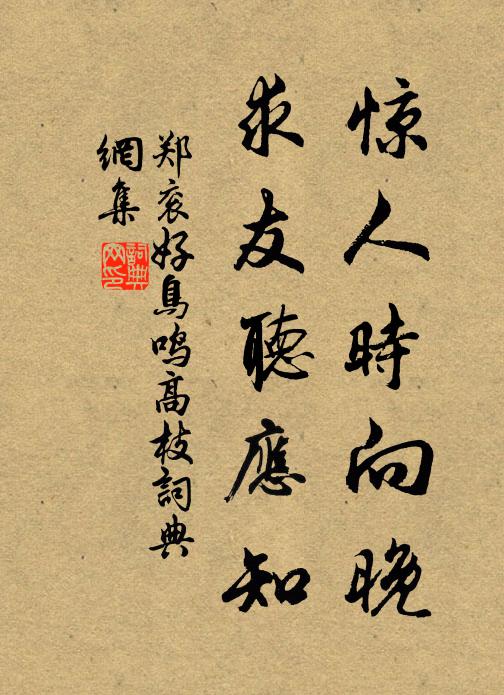 惊人時向晚
求友聽應知
郑衮好鳥鳴高枝詞典
網集
詞典
网印